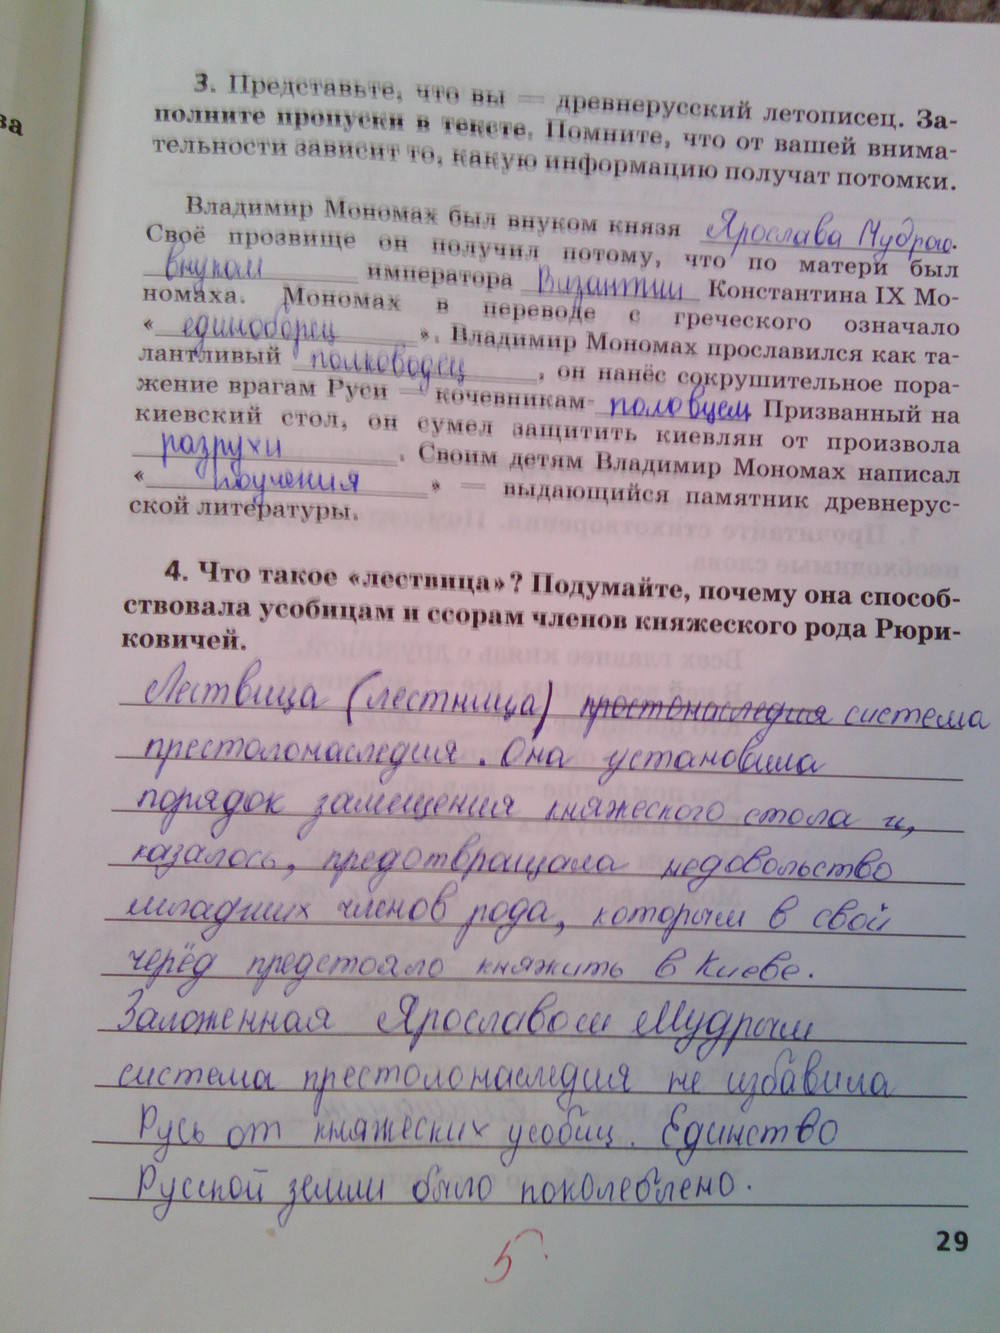 ва
3. Представьте, что вы — древнерусский летописец. За-
полните пропуски в тексте. Помните, что от вашей внима-
тельности зависит то, какую информацию получат потомки.
Владимир Мономах был внуком князя Ярослава Мудрого.
Своё прозвище он получил потому, что по матери был
внуком императора Византии Константина IX Мо-
номаха. Мономах в переводе с греческого означало
« единоборец ». Владимир Мономах прославился как та-
лантливый полководец, он нанёс сокрушительное пора-
жение врагам Руси — кочевникам- половцем Призванный на
киевский стол, он сумел защитить киевлян от произвола
разрухи. Своим детям Владимир Мономах написал
« поучения » — выдающийся памятник древнерус-
ской литературы.
4. Что такое «лествица»? Подумайте, почему она способ-
ствовала усобицам и ссорам членов княжеского рода Рюри-
ковичей.
Лествица (лестница) простонаследия система
престолонаследия. Она установила
порядок замещения княжеского стола и,
казалось, предотвращала недовольство
младших членов рода, которым в свой
черёд предстояло княжить в Киеве.
Заложенная Ярославом Мудрым
система престолонаследия не избавила
Русь от княжеских усобиц. Единство
Русской земли было поколеблено.
29
5